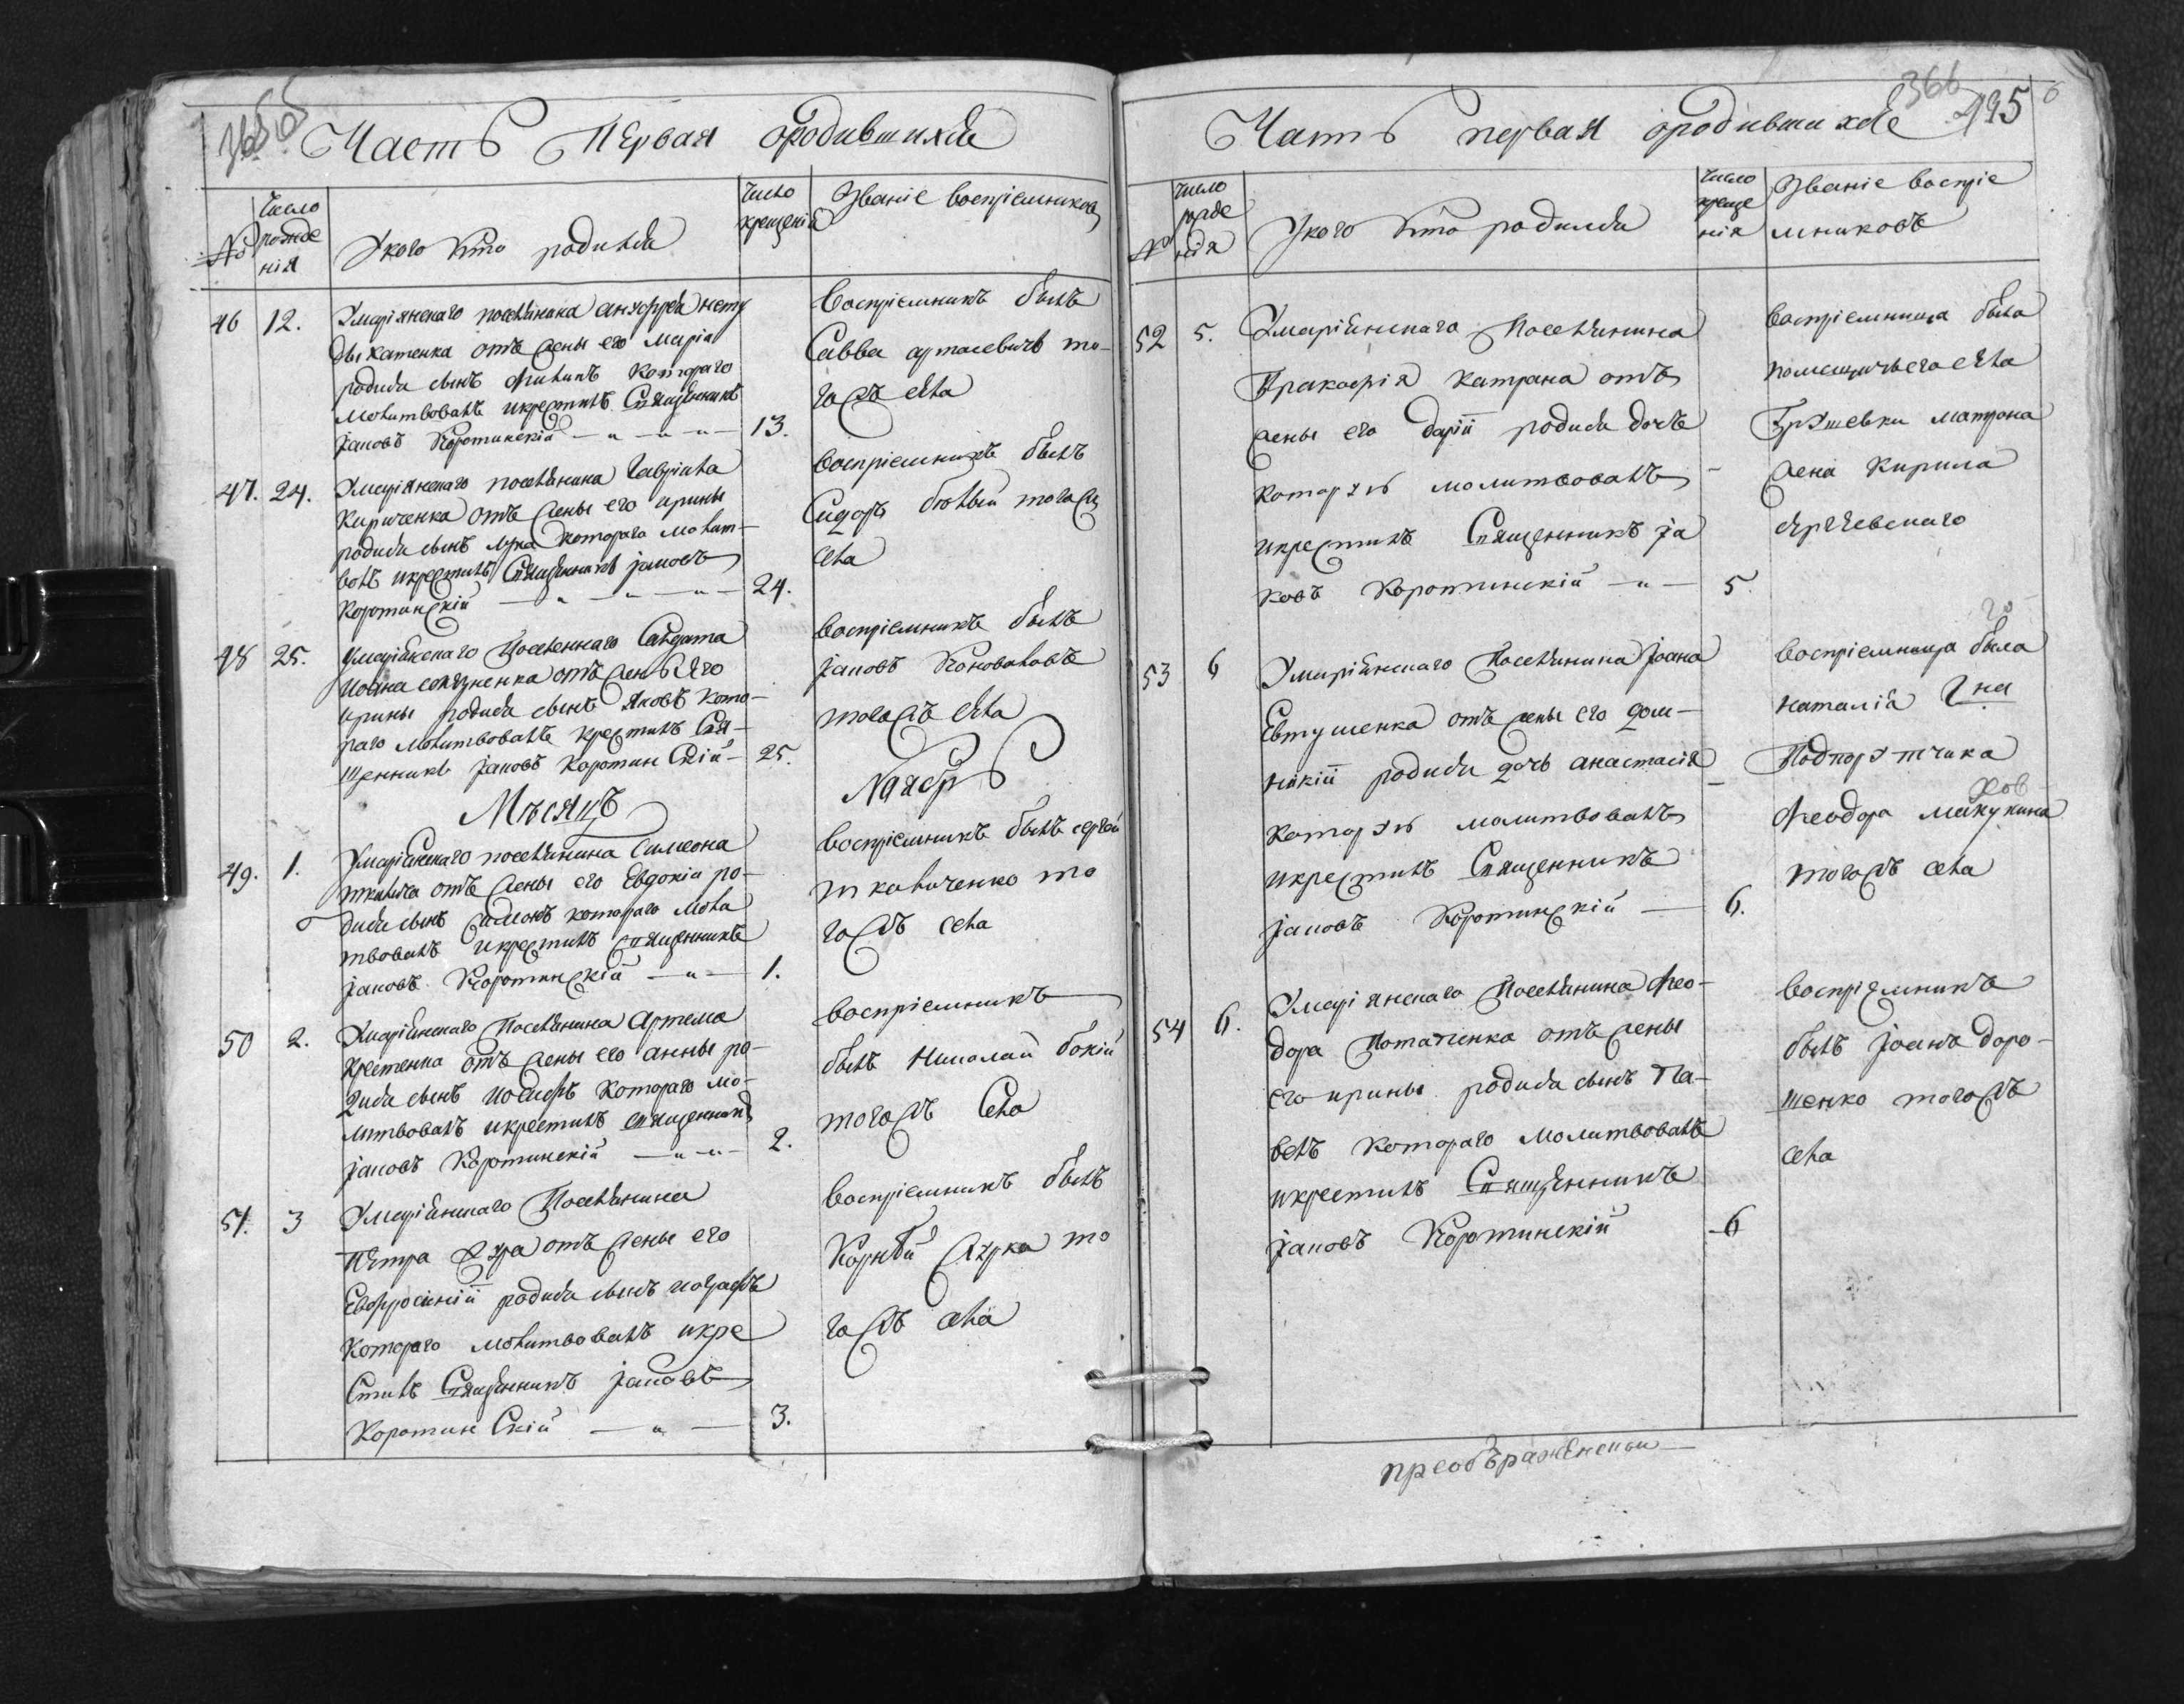 Часть Первая ородившихся
№
Число рожде нія
Укого кто родился
Число крещенія
Званіе воспріемниковъ
46 12. Умаріянскаго поселянина
отъ жены его Маріи
родился сынъ Филипъ котораго
молитвовалъ икрестилъ Священникъ
Іаковъ Коротинскій 13.
воспріемникъ былъ
Савва то-
гожъ села
47. 24. Умаріянскаго поселянина Гавріила
Кириченка отъ жены его ирины
родился сынъ лука котораго молит-
волъ икрестилъ Священникъ Іаковъ
Коротинскій 24.
воспріемникъ былъ
Сидоръ тогожъ
села
48 25. Умаріянскаго Поселеннаго Салдата
Иоана отъ жены его
ирины родился сынъ Яковъ кото-
раго молитвовалъ крестилъ Свя-
щенникъ Іаковъ Коротинскій 25.
воспріемникъ былъ
Іаковъ Коноваловъ
тогожъ села
Мѣсяцъ Наябрь
49. 1. Умаріянскаго поселянина Симеона
отъ жены его Евдокіи ро-
дился сынъ котораго моли
твовалъ икрестилъ священникъ
Іаковъ Коротинскій 1.
воспріемникъ былъ сергѣй
ткаличенко то
гожъ села
50 2. Умаріинскаго Поселянина Артема
отъ жены его анны ро-
дился сынъ иосифъ котораго мо-
литвовалъ икрестилъ священникъ
Іаковъ Коротинскій 2.
воспріемникъ
былъ Николай бокій
тогожъ Села
51. 3 Умаріинскаго Поселянина
Петра отъ жены его
Евфросиніи родился сынъ
котораго молитвовалъ икре
Стилъ Священникъ Іаковъ
Коротин Скій 3.
воспріемникъ былъ
Корнѣй то
гожъ села
366
195
Часть первая ородившихся
№
Число рожде нія
Укого кто родился
Число креще нія
Званіе воспріе мниковъ
52 5. Умаріинскаго Поселянина
Пракофія катрана отъ
жены его даріи родися дочь
которую молитвовалъ
икрестилъ Священникъ Іа
ковъ Коротинскій 5
воспріемница была
помещичьего села
Грушевки матрона
жена кирила
53 6 Умаріинскаго Поселянина Іоана
Евтушенка отъ жены его дом-
никіи родися дочь анастасія
которую молитвовалъ
икрестилъ Священникъ
Іаковъ Коротинскій 6.
воспріемница была
наталія
Подпорутчика
Феодора
тогожъ села
54 6. Умаріянскаго Поселянина Фео-
дора Потапенка отъ жены
его ирины родися сынъ Па-
велъ котораго молитвовалъ
икрестилъ Священникъ
Іаковъ Коротинскій 6
воспріемникъ
былъ Іоанъ доро-
шенко тогожъ
села